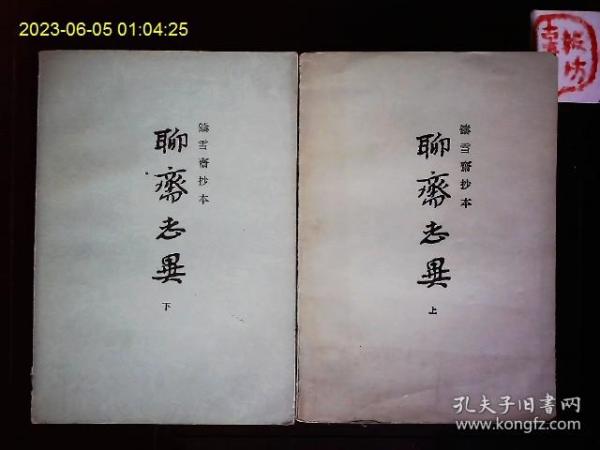 2023-06-05 01:04:25
鑄雪齋抄本
聊齋志異
下
鑄雪齋抄本
聊齋志異
上
孔夫子旧書网
www.kongfz.com